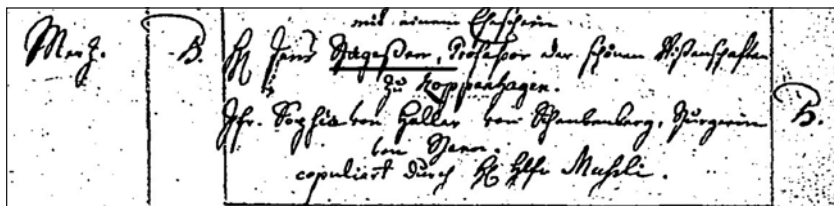 mit einem Eheschein
Merz. B. H. Jens Bagesen, Professor der schönen Wissenschaften
zu Koppenhagen.
Jfr. Sophia von Haller von Bern, Burgerin B.
von Bern.
copuliert durch H. Hlfr Muhsli.